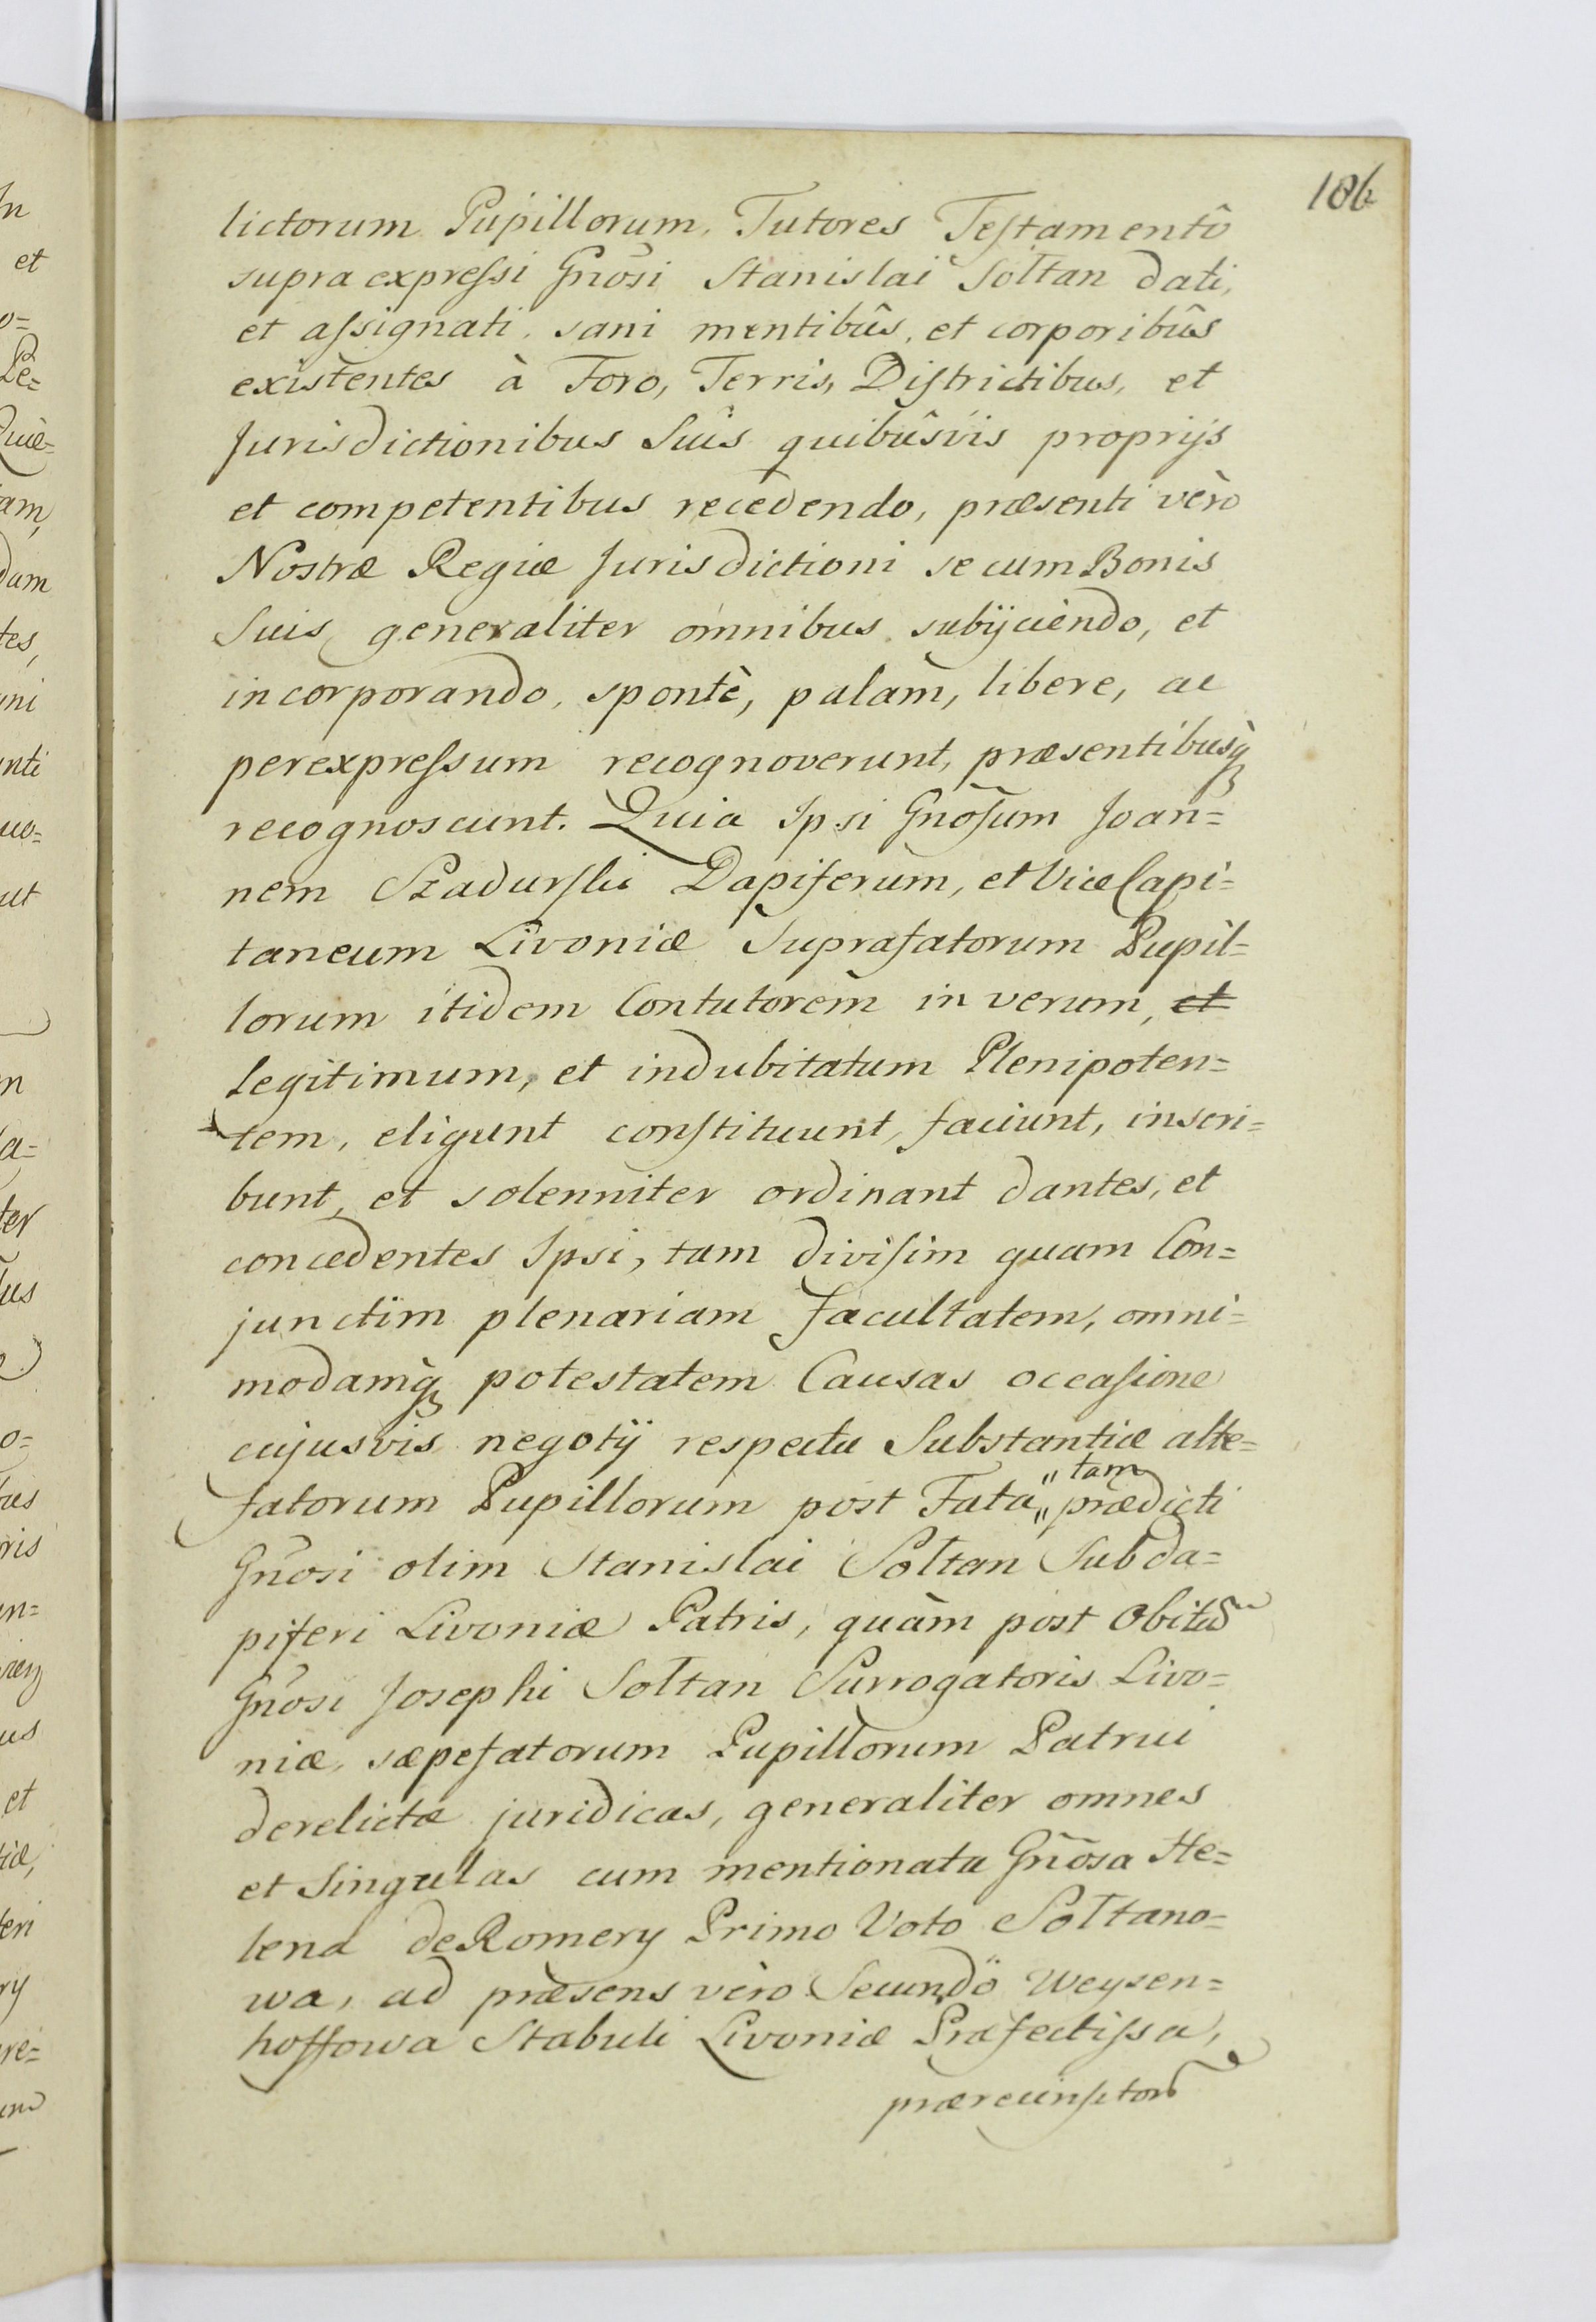 186
lictorum Pupillorum, Tutores Teſtamentô
supra expreſsi Gnõsi Stanislai Sołtan dati,
et aſsignati, sani mentibûs, et corporibûs
existentes à Foro, Terris, Diſtrictibus, et
Jurisdictionibus Suis quibûsvis proprijs
et competentibus recedendo, præsenti vèro
Nostræ Regiæ Jurisdictioni se cum Bonis
Suis generaliter omnibus subijciendo, et
incorporando, spontè, palam, libere, ac
perexpreſsum recognoverunt, præsentibusq̀
recognoscunt. Quia Ipsi Gnõſum Joan=
nem Szadurſki Dapiferum, et Vice Capi=
taneum Livoniæ Suprafatorum Pupil=
lorum itidem Contutorem in verum, et
Legitimum, et indubitatum Plenipoten=
tem, eligunt conſtituunt, faciunt, inscri=
bunt, et solenniter ordinant dantes, et
concedentes Ipsi, tam diviſim quam Con=
junctim plenariam facultatem, omni=
modamq̀ potestatem Causas occaſione
cujusvis negotij respectu Substantiæ alte=
fatorum Pupillorum post Fata „tam„ prædicti
Gnõsi olim Stanislai Sołtan Subda=
piferi Livoniæ Patris, quàm post Obitũ
Gnõsi Josephi Sołtan Surrogatoris Livo=
niæ, sæpefatorum Pupillorum Patrui
derelictæ juridicas, generaliter omnes
et Singulas cum mentionata Gnõsa He=
lena de Romery Primo Voto Sołtano=
wa, ad præsens vèro Secundö Weysen=
hoffowa Stabuli Livoniæ Præfectiſsa,
prærecinſitorũ